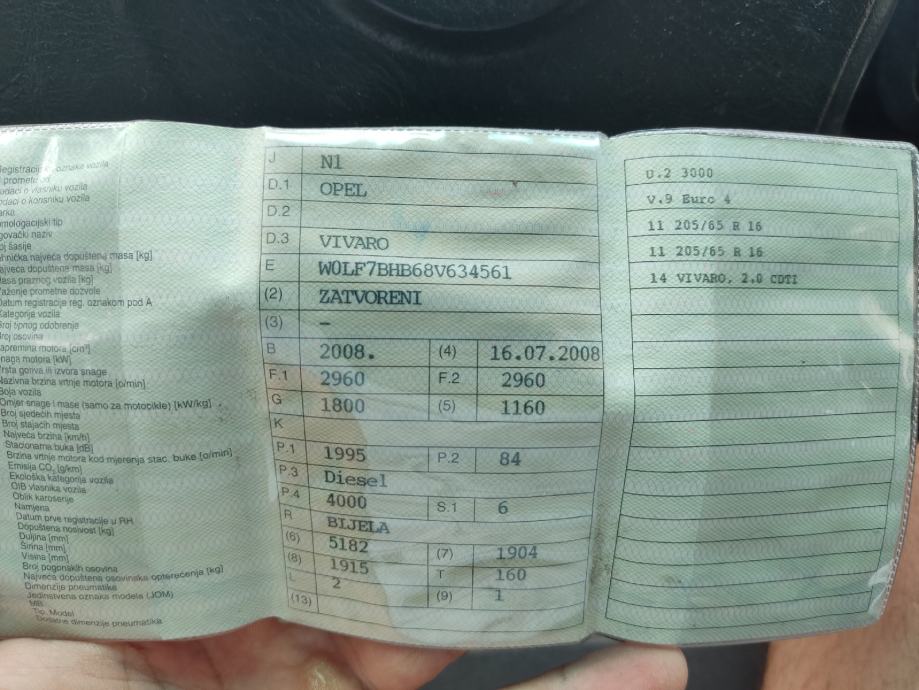 vozila
prometu od
o vlasniku vozila
o korisniku vozila
tip
naziv
šasije
najveća dopuštena masa [kg]
dopuštena masa [kg]
praznog vozila [kg]
prometne dozvole
registracije reg. oznakom pod A
Kategorija vozila
Broj tipnog odobrenja
Broj osovina
motora [cm³]
motora [kW]
Vrsta goriva ili izvora snage
Nazivna brzina vrtnje motora [o/min]
Boja vozila
Omjer snage i mase (samo za motocikle) [kW/kg]
Broj sjedećih mjesta
Broj stajaćih mjesta
Najveća brzina [km/h]
Stacionarna buka [dB]
Brzina vrtnje motora kod mjerenja stac. buke [o/min]
Emisija CO₂ [g/km]
Ekološka kategorija vozila
OIB vlasnika vozila
Oblik karoserije
Namjena
Datum prve registracije u RH
Dopuštena nosivost [kg]
Duljina [mm]
Širina [mm]
Visina [mm]
Broj pogonskih osovina
Najveća dopuštena osovinska opterećenja [kg]
Dimenzije pneumatika
Jedinstvena oznaka modela (JOM)
MB
Tip, Model
Dodatne dimenzije pneumatika
J N1
D.1 OPEL
D.2
D.3 VIVARO
E W0LF7BHB68V634561
(2) ZATVORENI
(3) –
B 2008. (4) 16.07.2008
F.1 2960 F.2 2960
G 1800 (5) 1160
K
P.1 1995 P.2 84
P.3 Diesel
P.4 4000 S.1 6
R BIJELA
(6) 5182 (7) 1904
(8) 1915 T 160
L 2 (9) 1
(13)
U.2 3000
V.9 Euro 4
11 205/65 R 16
11 205/65 R 16
14 VIVARO, 2.0 CDTI